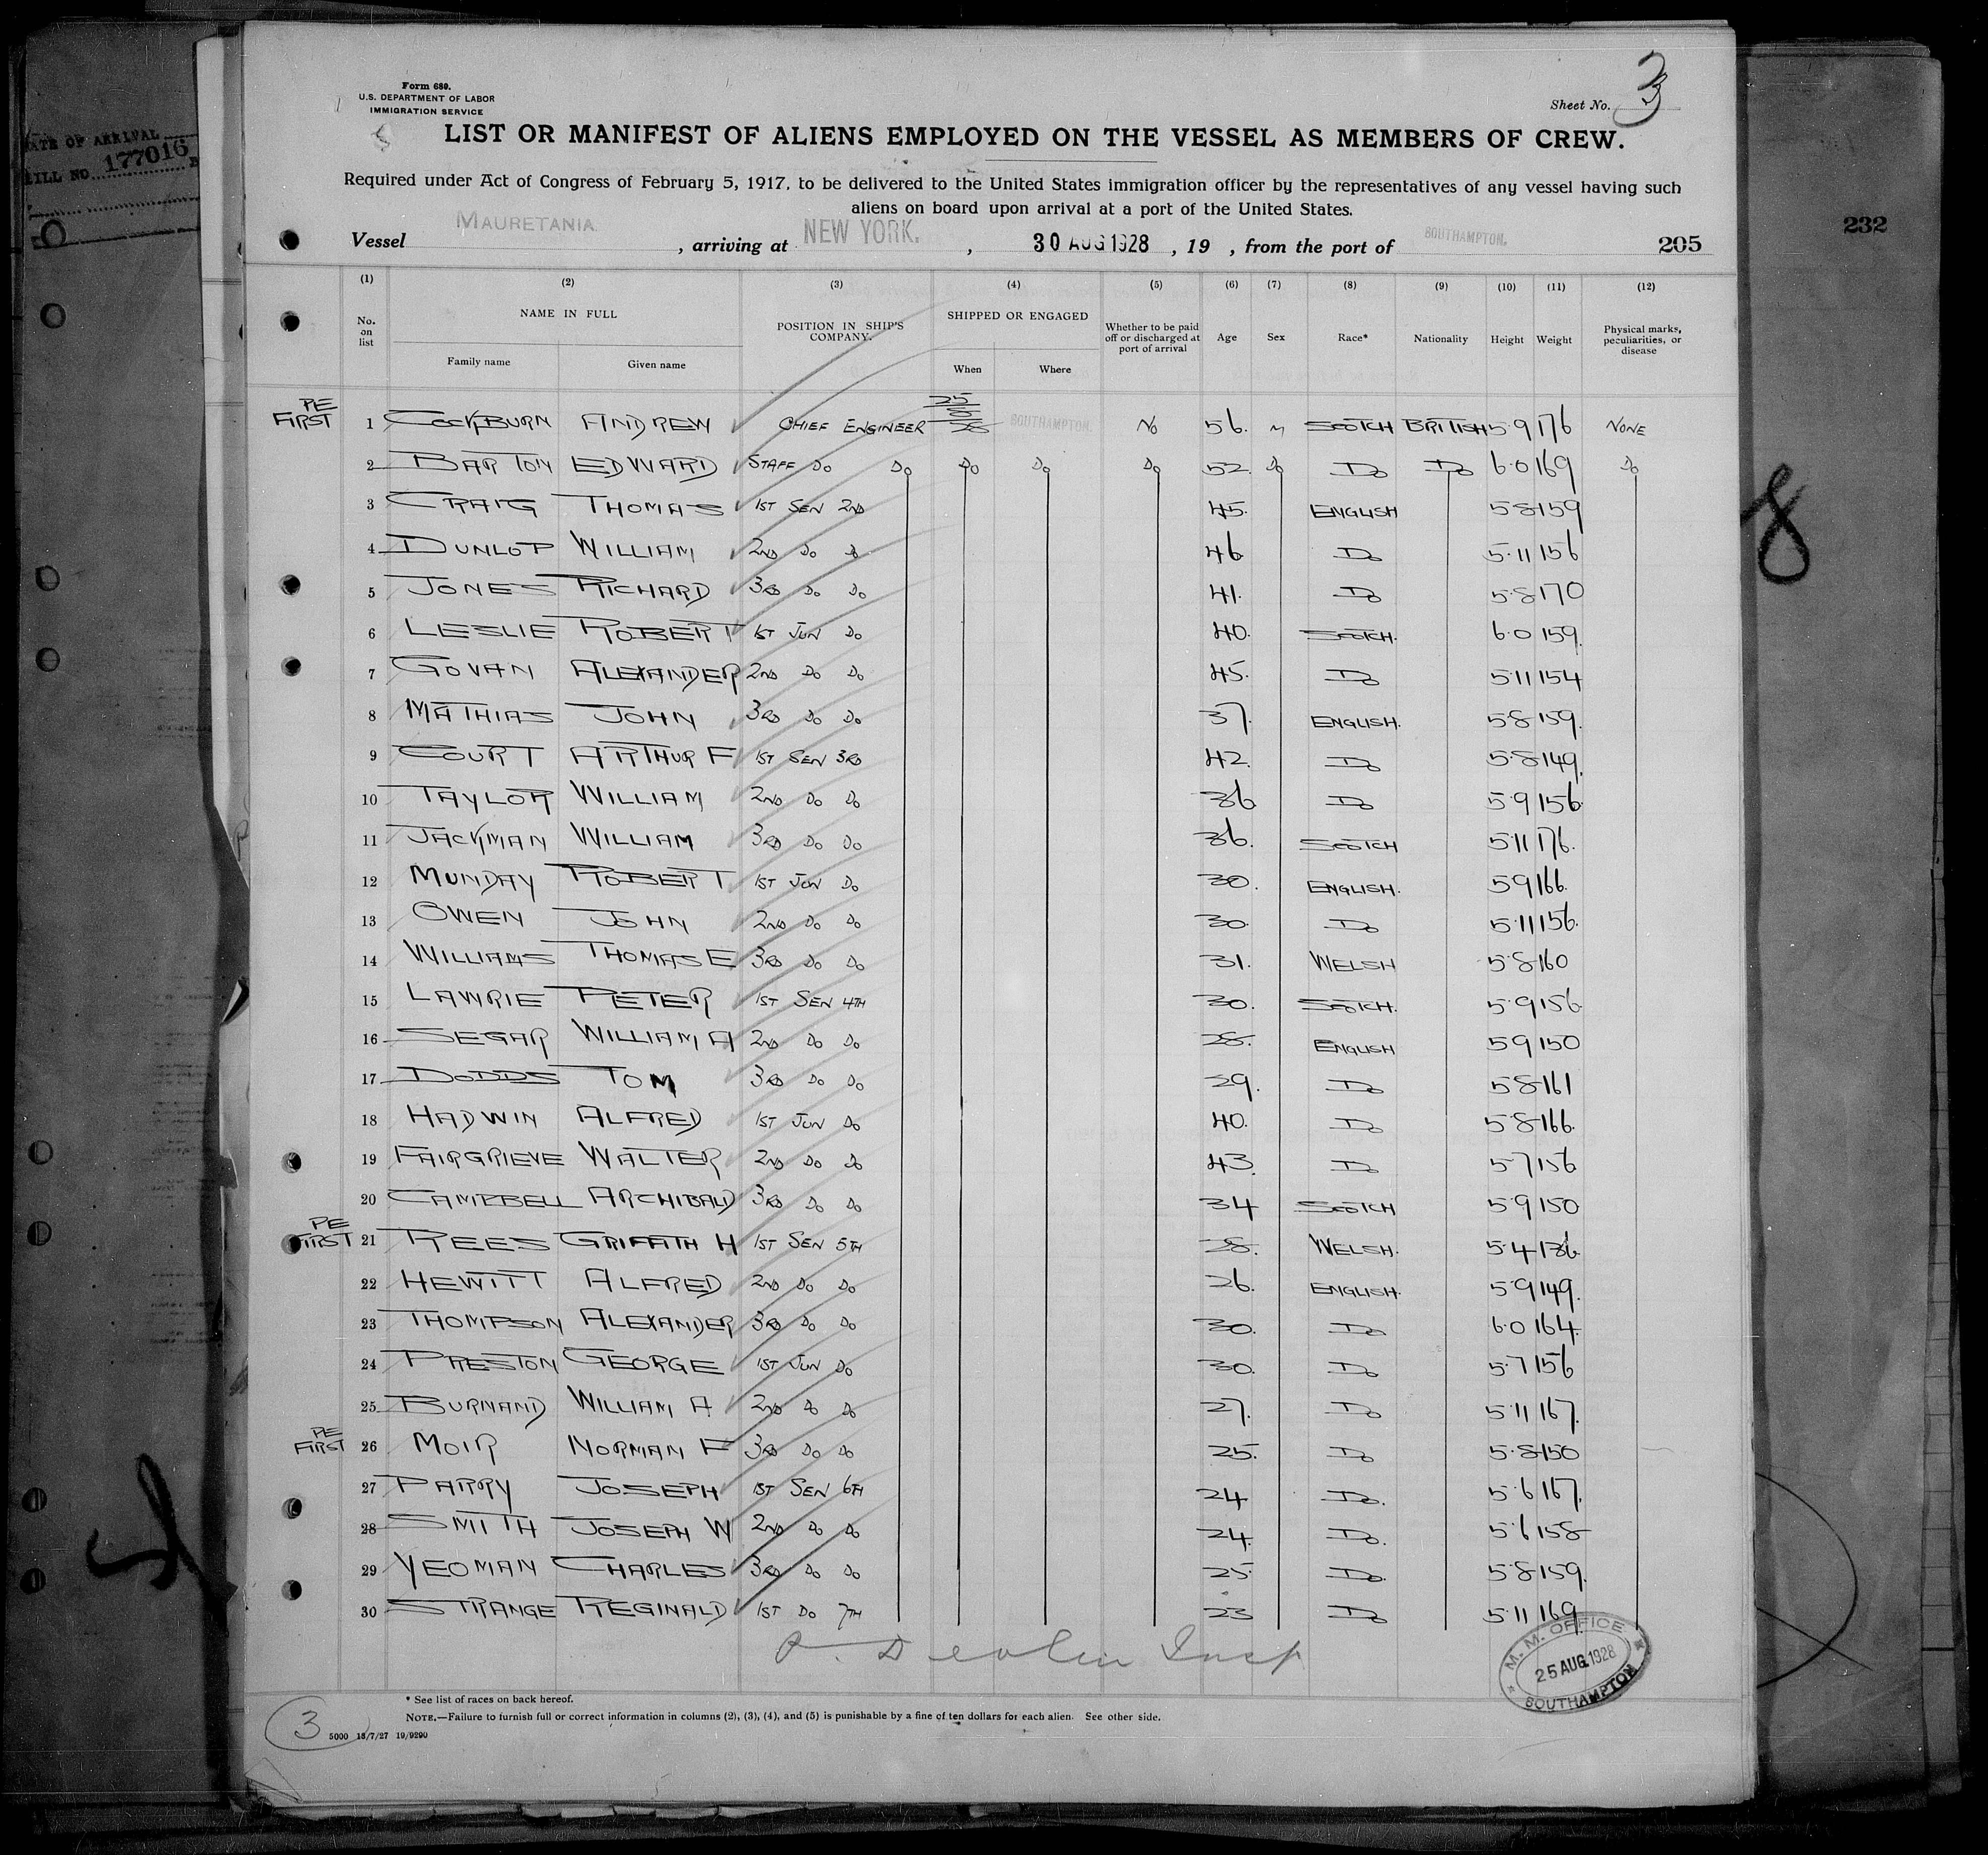 Form 689.
U.S. DEPARTMENT OF LABOR
IMMIGRATION SERVICE
Sheet No. 3
DATE OF ARRIVAL
BILL NO. 177016
LIST OR MANIFEST OF ALIENS EMPLOYED ON THE VESSEL AS MEMBERS OF CREW.
Required under Act of Congress of February 5, 1917, to be delivered to the United States immigration officer by the representatives of any vessel having such
aliens on board upon arrival at a port of the United States.
Vessel MAURETANIA, arriving at NEW YORK., 30 AUG 1928, 19 , from the port of SOUTHAMPTON. 205
232
(1) (2) (3) (4) (5) (6) (7) (8) (9) (10) (11) (12)
No. on list NAME IN FULL Family name Given name POSITION IN SHIP'S COMPANY. SHIPPED OR ENGAGED When Where Whether to be paid off or discharged at port of arrival Age Sex Race* Nationality Height Weight Physical marks, peculiarities, or disease
PE FIRST 1 COCKBURN ANDREW CHIEF ENGINEER 25/8/28 SOUTHAMPTON. NO 56. M SCOTCH BRITISH 5.9 176 NONE
2 BARTON EDWARD STAFF DO DO DO DO DO 52. DO DO DO 6.0 169 DO
3 CRAIG THOMAS 1ST SEN 2ND 45. ENGLISH 5.8 159
4 DUNLOP WILLIAM 2ND DO DO 46 DO 5.11 156
5 JONES RICHARD 3RD DO DO 41. DO 5.8 170
6 LESLIE ROBERT 1ST JUN DO 40. SCOTCH. 6.0 159.
7 GOVAN ALEXANDER 2ND DO DO 45. DO 5.11 154
8 MATHIAS JOHN 3RD DO DO 37. ENGLISH. 5.8 159.
9 COURT ARTHUR F 1ST SEN 3RD 42. DO 5.8 149.
10 TAYLOR WILLIAM 2ND DO DO 36 DO 5.9 156.
11 JACKMAN WILLIAM 3RD DO DO 36. SCOTCH 5.11 176.
12 MUNDAY ROBERT 1ST JUN DO 30. ENGLISH. 5.9 166.
13 OWEN JOHN 2ND DO DO 30. DO 5.11 156.
14 WILLIAMS THOMAS E 3RD DO DO 31. WELSH 5.8 160
15 LAWRIE PETER 1ST SEN 4TH 30. SCOTCH. 5.9 156.
16 SEGAR WILLIAM A 2ND DO DO 28. ENGLISH 5.9 150
17 DODDS TOM 3RD DO DO 29. DO 5.8 161
18 HADWIN ALFRED 1ST JUN DO 40. DO 5.8 166.
19 FAIRGRIEVE WALTER 2ND DO DO 43. DO 5.7 156
20 CAMPBELL ARCHIBALD 3RD DO DO 34 SCOTCH 5.9 150
PE FIRST 21 REES GRIFFITH H 1ST SEN 5TH 28. WELSH. 5.4 136.
22 HEWITT ALFRED 2ND DO DO 26. ENGLISH. 5.9 149.
23 THOMPSON ALEXANDER 3RD DO DO 30. DO 6.0 164.
24 PRESTON GEORGE 1ST JUN DO 30. DO 5.7 156
25 BURNAND WILLIAM A. 2ND DO DO 27. DO 5.11 167.
PE FIRST 26 MOIR NORMAN F 3RD DO DO 25. DO 5.8 150
27 PARRY JOSEPH 1ST SEN 6TH 24 DO. 5.6 167.
28 SMITH JOSEPH W 2ND DO DO 24. DO. 5.6 158
29 YEOMAN CHARLES 3RD DO DO 25. DO. 5.8 159.
30 STRANGE REGINALD 1ST DO 7TH 23 DO 5.11 169.
Devlin Insp
M. M. OFFICE
25 AUG 1928
SOUTHAMPTON
* See list of races on back hereof.
NOTE.—Failure to furnish full or correct information in columns (2), (3), (4), and (5) is punishable by a fine of ten dollars for each alien. See other side.
3
5000 18/7/27 19/9290
8